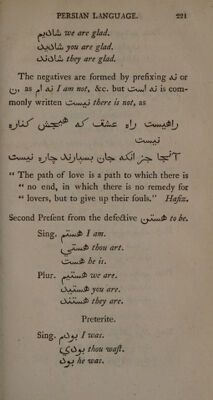 PERSIAN LANGUAGE. 221
شادیم we are glad.
شادید you are glad.
شادند they are glad.
The negatives are formed by prefixing نه or
ن, as نه ام I am not, &c. but نه است is com-
monly written نیست there is not, as
راهیست راه عشق که هیچش کناره
نیست
آنجا جز آنکه جان بسپارند چاره نیست
“ The path of love is a path to which there is
“ no end, in which there is no remedy for
“ lovers, but to give up their souls.” Hafiz.
Second Preſent from the defective هستن to be.
Sing. هستم I am.
هستی thou art.
هست he is.
Plur. هستیم we are.
هستید you are.
هستند they are.
Preterite.
Sing. بودم I was.
بودی thou waſt.
بود he was.